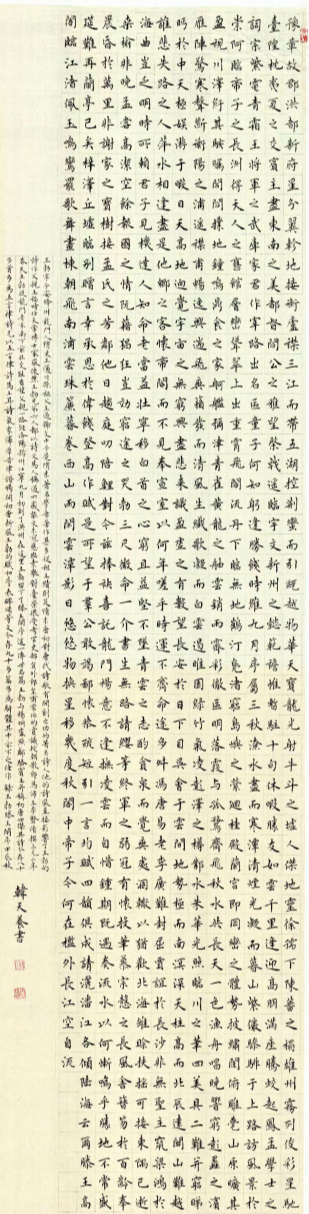 豫章故郡洪都新府星分翼軫地接衡廬襟三江而帶五湖控制蠻而引甌越物華天寶龍光射牛斗之墟人傑地靈徐孺下陳蕃之榻雄州霧列俊彩星馳
臺隍枕夷夏之交賓主盡東南之美都督閻公之雅望棨戟遙臨宇文新州之懿範襜帷暫駐十旬休暇勝友如雲千里逢迎高朋滿座騰蛟起鳳孟學士之
詞宗紫電青霜王將軍之武庫家君作宰路出名區童子何知躬逢勝餞時維九月序屬三秋潦水盡而寒潭清煙光凝而暮山紫儼驂騑於上路訪風景於
崇阿臨帝子之長洲得天人之舊館層巒聳翠上出重霄飛閣流丹下臨無地鶴汀鳧渚窮島嶼之縈迴桂殿蘭宮即岡巒之體勢披繡闥俯雕甍山原曠其
盈視川澤紆其駭矚閭閻撲地鐘鳴鼎食之家舸艦彌津青雀黃龍之舳雲銷雨霽彩徹區明落霞與孤鶩齊飛秋水共長天一色漁舟唱晚響窮彭蠡之濱
雁陣驚寒聲斷衡陽之浦遙襟甫暢逸興遄飛爽籟發而清風生纖歌凝而白雲遏睢園綠竹氣凌彭澤之樽鄴水朱華光照臨川之筆四美具二難并窮睇
眄於中天極娛遊於暇日天高地迥覺宇宙之無窮興盡悲來識盈虛之有數望長安於日下目吳會於雲間地勢極而南溟深天柱高而北辰遠關山難越
誰悲失路之人萍水相逢盡是他鄉之客懷帝閽而不見奉宣室以何年嗟乎時運不齊命途多舛馮唐易老李廣難封屈賈誼於長沙非無聖主竄梁鴻於
海曲豈乏明時所賴君子見機達人知命老當益壯寧移白首之心窮且益堅不墜青雲之志酌貪泉而覺爽處涸轍以猶歡北海雖賒扶搖可接東隅已逝
桑榆非晚孟嘗高潔空餘報國之情阮籍猖狂豈效窮途之哭勃三尺微命一介書生無路請纓等終軍之弱冠有懷投筆慕宗愨之長風舍簪笏於百齡奉
晨昏於萬里非謝家之寶樹接孟氏之芳鄰他日趨庭叨陪鯉對今茲捧袂喜託龍門楊意不逢撫凌雲而自惜鍾期既遇奏流水以何慚嗚乎勝地不常盛
筵難再蘭亭已矣梓澤丘墟臨別贈言幸承恩於偉餞登高作賦是所望于群公敢竭鄙懷恭疏短引一言均賦四韻俱成請灑潘江各傾陸海云爾滕王高
閣臨江渚佩玉鳴鸞罷歌舞畫棟朝飛南浦雲珠簾暮卷西山雨閒雲潭影日悠悠物換星移幾度秋閣中帝子今何在檻外長江空自流
韓天養書